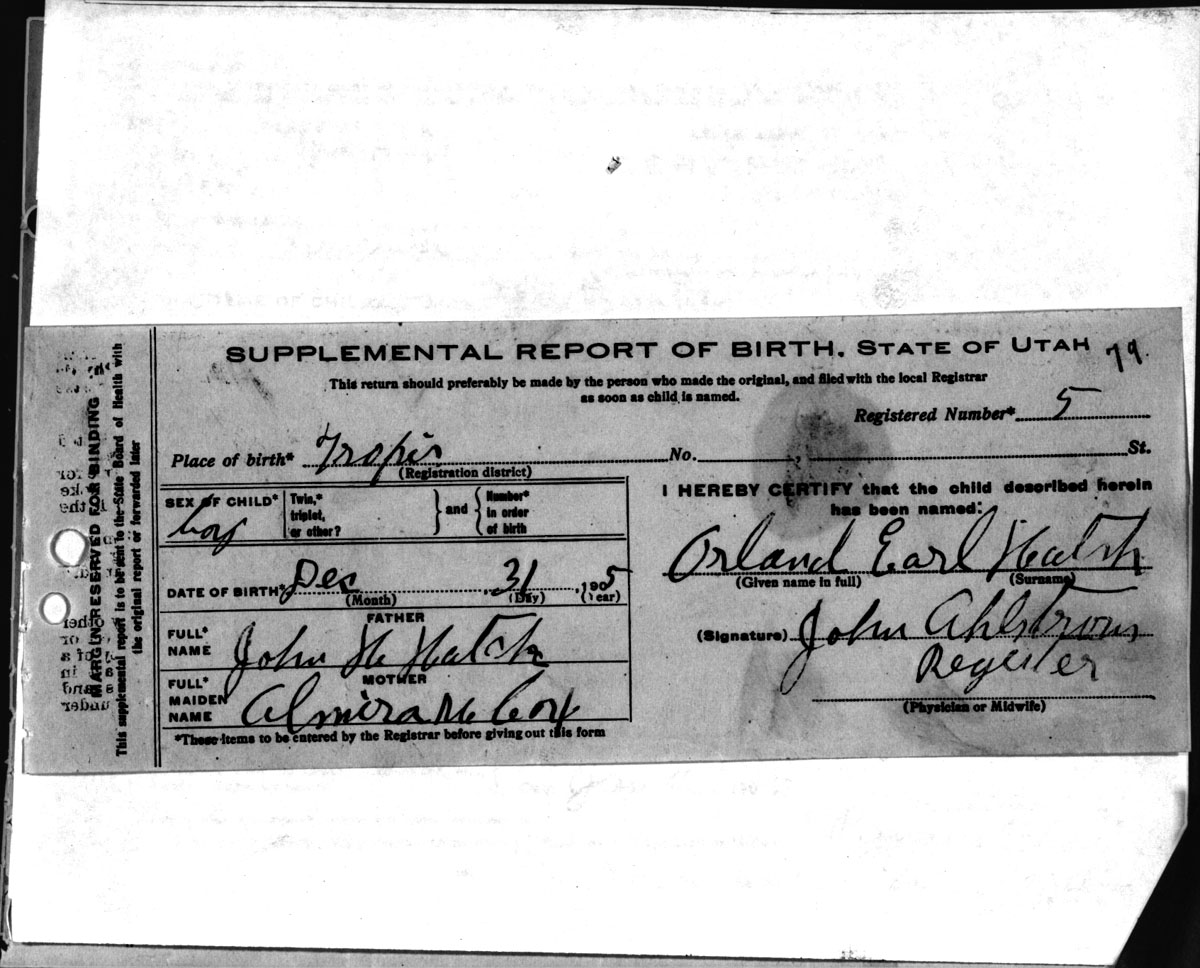 SUPPLEMENTAL REPORT OF BIRTH. STATE OF UTAH 79.
This return should preferably be made by the person who made the original, and filed with the local Registrar
as soon as child is named.
Registered Number* 5
Place of birth* Tropic No. St.
(Registration district)
SEX OF CHILD* boy
Twin,* triplet, or other? } and { Number* in order of birth
DATE OF BIRTH* Dec 31, 1905
(Month) (Day) (Year)
FATHER
FULL* NAME John H Hatch
MOTHER
FULL* MAIDEN NAME Almira M Cox
*These items to be entered by the Registrar before giving out this form
I HEREBY CERTIFY that the child described herein
has been named:
Orland Earl Hatch
(Given name in full) (Surname)
(Signature) John Ahlstrom
Register
(Physician or Midwife)
MARGIN RESERVED FOR BINDING
This supplemental report is to be sent to the State Board of Health with
the original report or forwarded later